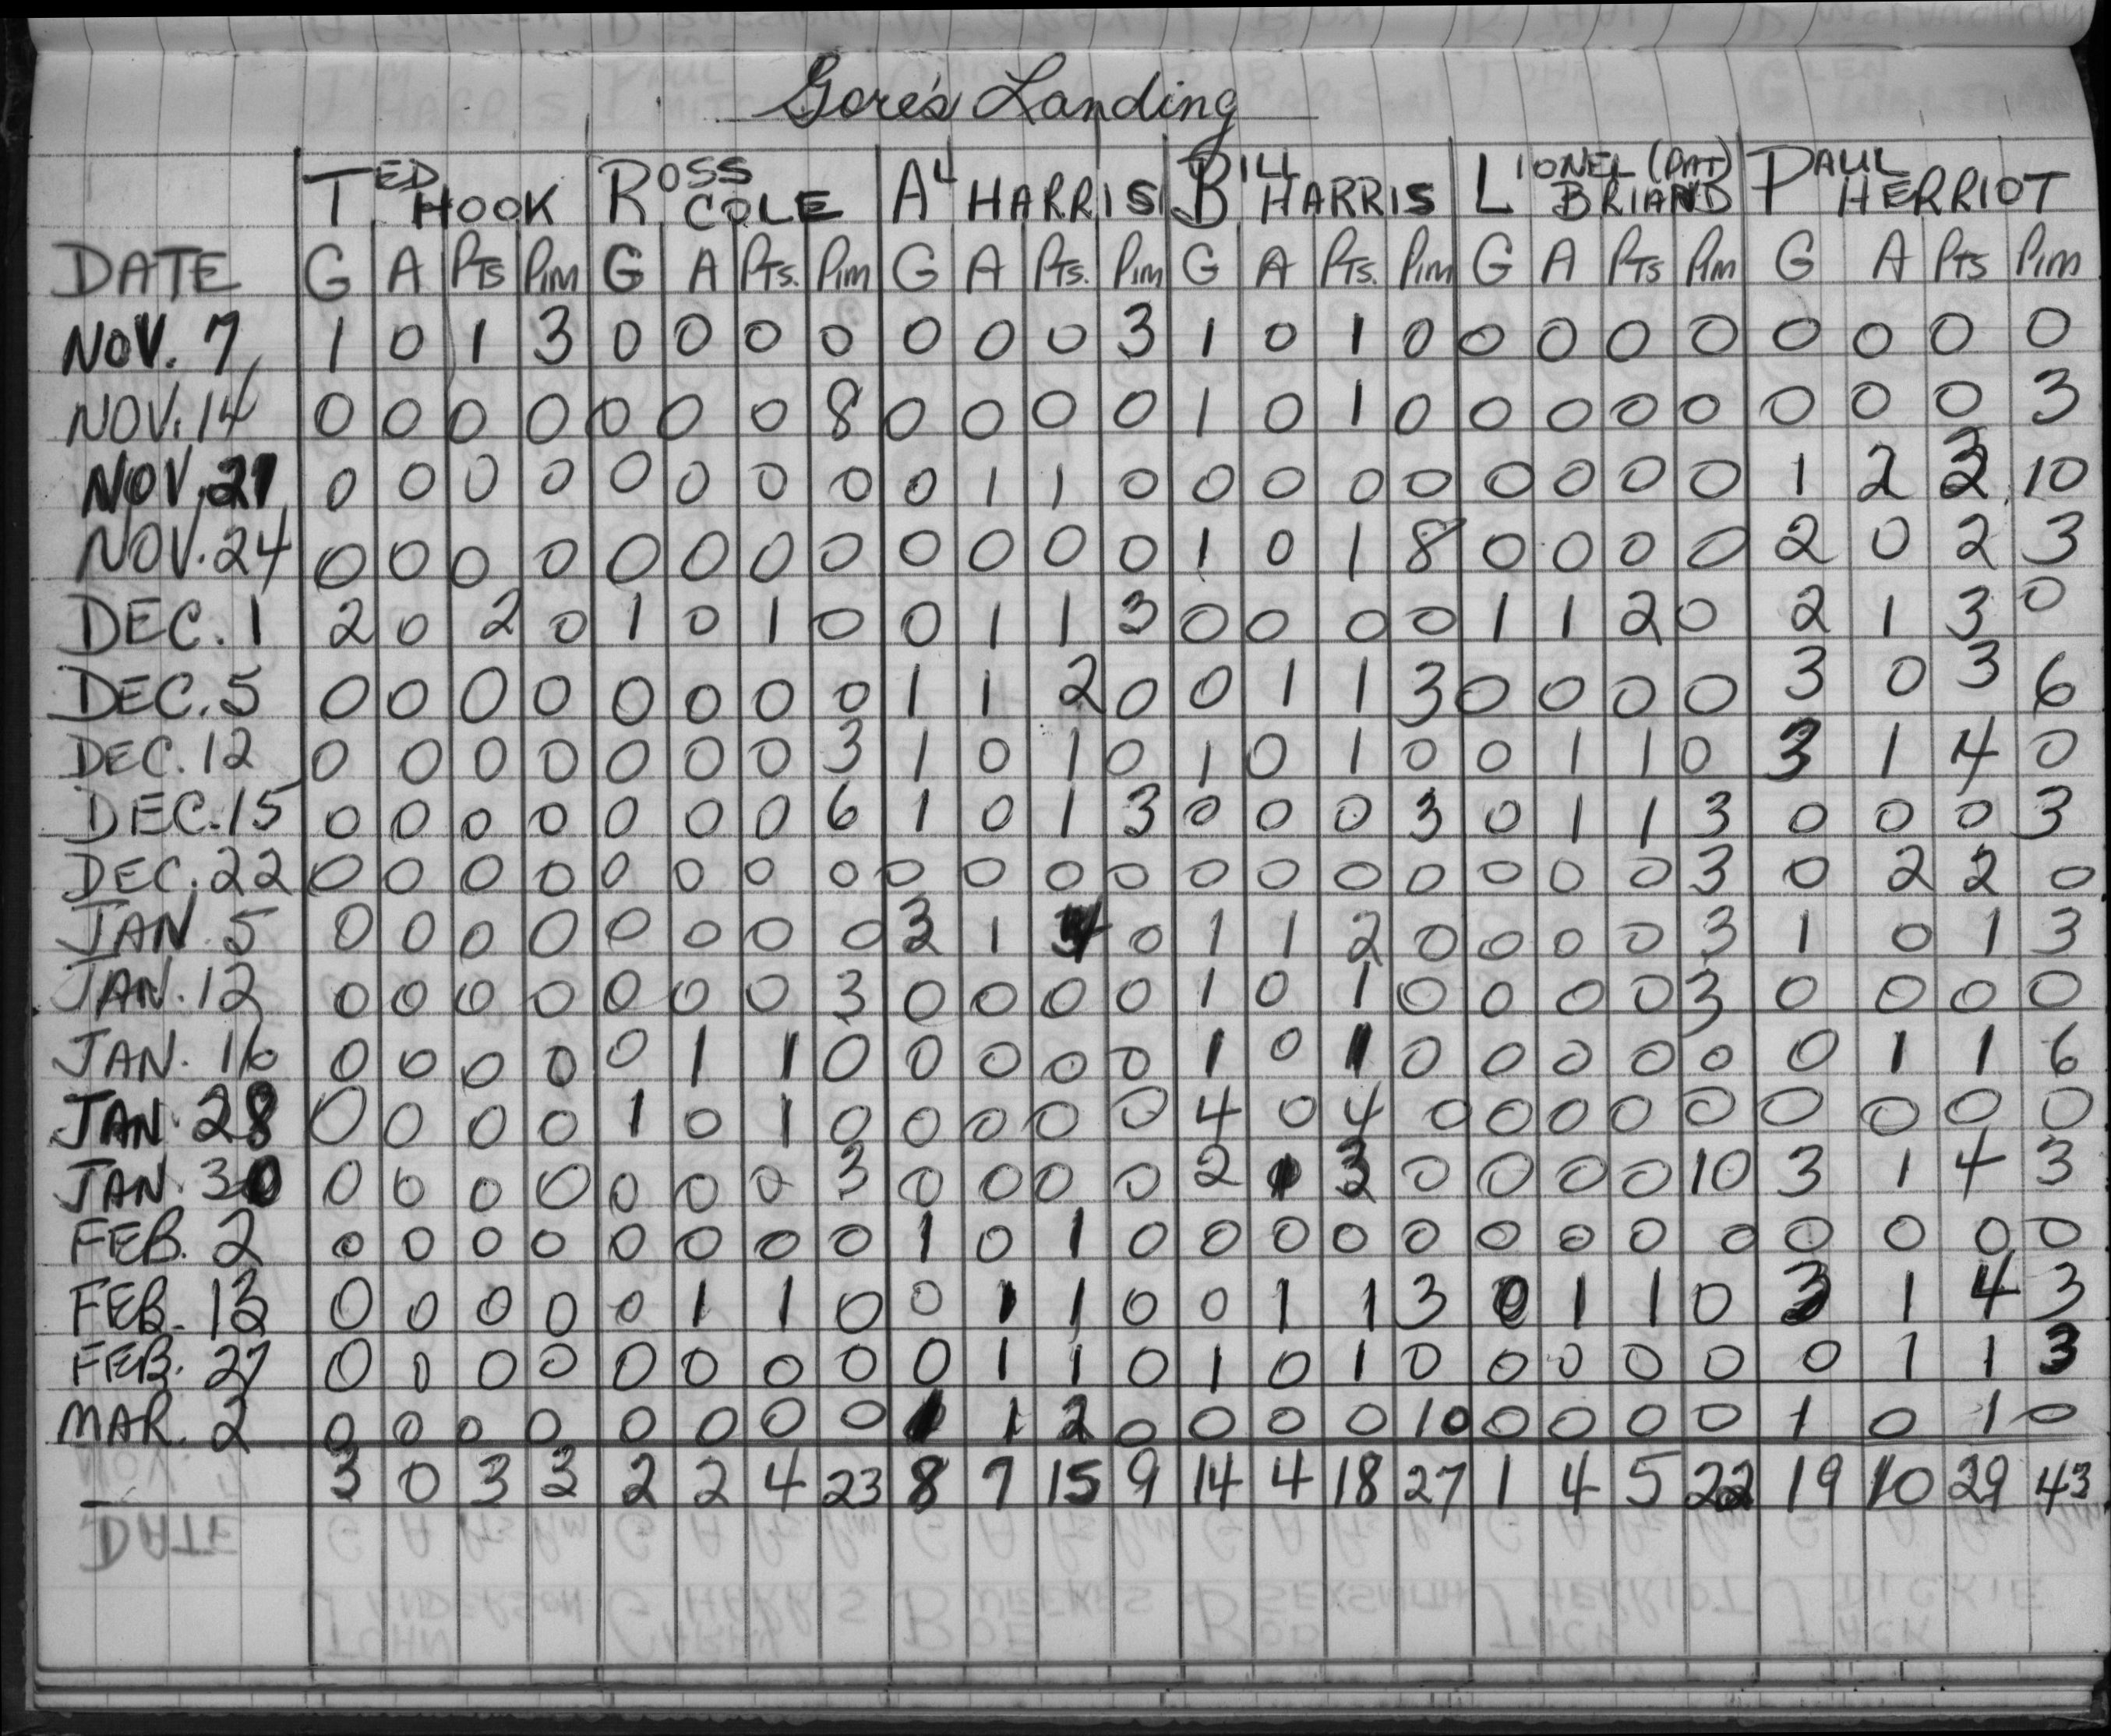 Gore's Landing
TED HOOK ROSS COLE AL HARRIS BILL HARRIS LIONEL (PAT) BRIAND PAUL HERRIOT
DATE G A PTS PIM G A PTS. PIM G A PTS. PIM G A PTS. PIM G A PTS PIM G A PTS PIM
NOV. 7 1 0 1 3 0 0 0 0 0 0 0 3 1 0 1 0 0 0 0 0 0 0 0 0
NOV. 14 0 0 0 0 0 0 0 8 0 0 0 0 1 0 1 0 0 0 0 0 0 0 0 3
NOV. 21 0 0 0 0 0 0 0 0 0 1 1 0 0 0 0 0 0 0 0 0 1 2 3 10
NOV. 24 0 0 0 0 0 0 0 0 0 0 0 0 1 0 1 8 0 0 0 0 2 0 2 3
DEC. 1 2 0 2 0 1 0 1 0 0 1 1 3 0 0 0 0 1 1 2 0 2 1 3 0
DEC. 5 0 0 0 0 0 0 0 0 1 1 2 0 0 1 1 3 0 0 0 0 3 0 3 6
DEC. 12 0 0 0 0 0 0 0 3 1 0 1 0 1 0 1 0 0 1 1 0 3 1 4 0
DEC. 15 0 0 0 0 0 0 0 6 1 0 1 3 0 0 0 3 0 1 1 3 0 0 0 3
DEC. 22 0 0 0 0 0 0 0 0 0 0 0 0 0 0 0 0 0 0 0 3 0 2 2 0
JAN. 5 0 0 0 0 0 0 0 0 3 1 4 0 1 1 2 0 0 0 0 3 1 0 1 3
JAN. 12 0 0 0 0 0 0 0 3 0 0 0 0 1 0 1 0 0 0 0 3 0 0 0 0
JAN. 16 0 0 0 0 0 1 1 0 0 0 0 0 1 0 1 0 0 0 0 0 0 1 1 6
JAN. 28 0 0 0 0 1 0 1 0 0 0 0 0 4 0 4 0 0 0 0 0 0 0 0 0
JAN. 30 0 0 0 0 0 0 0 3 0 0 0 0 2 1 3 0 0 0 0 10 3 1 4 3
FEB. 2 0 0 0 0 0 0 0 0 1 0 1 0 0 0 0 0 0 0 0 0 0 0 0 0
FEB. 13 0 0 0 0 0 1 1 0 0 1 1 0 0 1 1 3 0 1 1 0 3 1 4 3
FEB. 27 0 0 0 0 0 0 0 0 0 1 1 0 1 0 1 0 0 0 0 0 0 1 1 3
MAR. 2 0 0 0 0 0 0 0 0 1 1 2 0 0 0 0 10 0 0 0 0 1 0 1 0
3 0 3 3 2 2 4 23 8 7 15 9 14 4 18 27 1 4 5 22 19 10 29 43